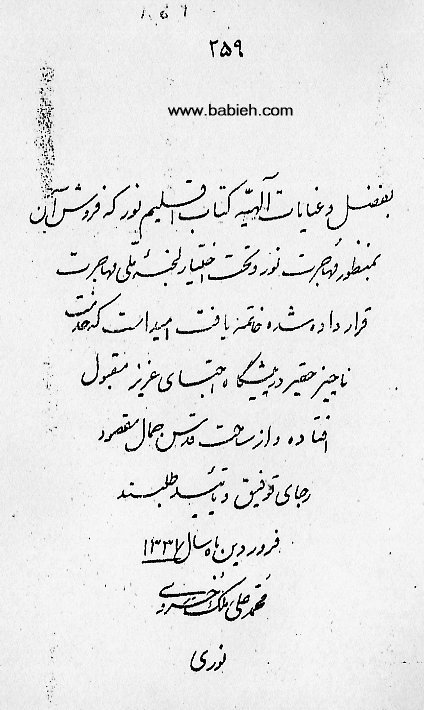 ۲۵۹
www.babieh.com
بفضل و عنایات آلهیّه کتاب اقلیم نور که فروش آن
بمنظور مهاجرت نور و تحت اختیار لجنهٔ ملّی مهاجرت
قرار داده شده خاتمه یافت امید است که خدمت
ناچیز حقیر در پیشگاه احبّای عزیز مقبول
افتاده و از ساحت قدس جمال مقصود
رجای توفیق و تأیید طلبند
فروردین ماه سال ۱۳۳۷
محمّد علی ملک خسروی
نوری